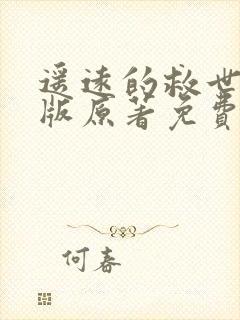 遥远的救世
版原著免費
何春